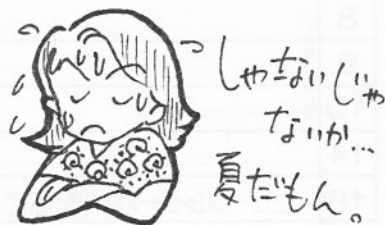 しゃあないじゃ
ないか…
夏だもん。